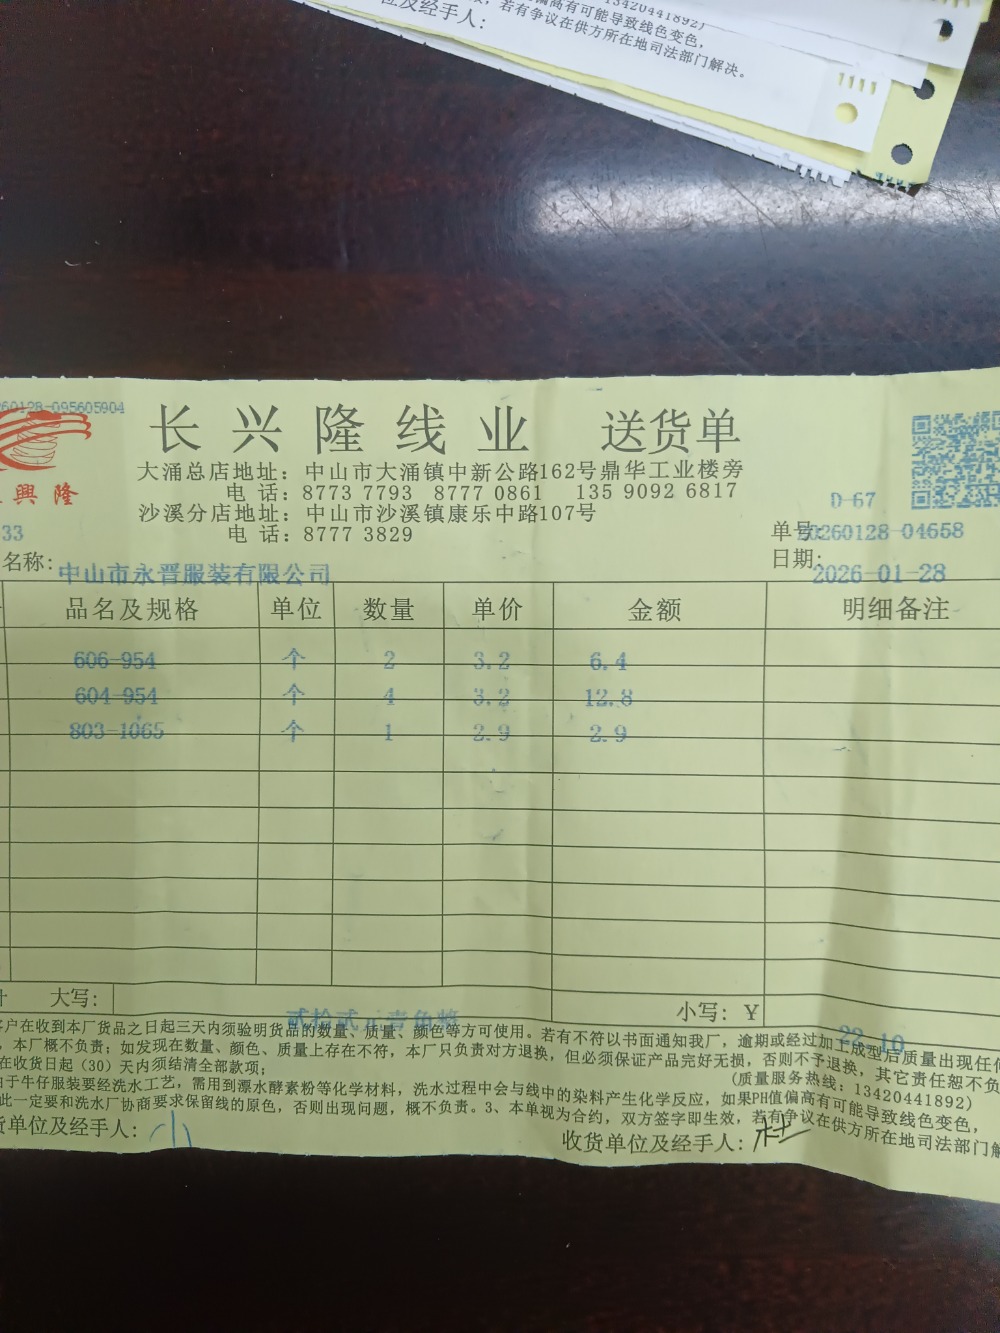 13420441892)
偏高有可能导致线色变色,
若有争议在供方所在地司法部门解决。
位及经手人:
260128-095605904
长兴隆线业 送货单
興隆
大涌总店地址: 中山市大涌镇中新公路162号鼎华工业楼旁
电 话: 8773 7793 8777 0861 135 9092 6817
沙溪分店地址: 中山市沙溪镇康乐中路107号
电 话: 8777 3829
D-67
33
单号: 20260128-04658
名称: 中山市永晋服装有限公司
日期: 2026-01-28
品名及规格 单位 数量 单价 金额 明细备注
606-954 个 2 3.2 6.4
604-954 个 4 3.2 12.8
803-1065 个 1 2.9 2.9
计 大写: 贰拾贰元壹角整 小写: ¥ 22.10
客户在收到本厂货品之日起三天内须验明货品的数量、质量、颜色等方可使用。若有不符以书面通知我厂, 逾期或经过加工成型后质量出现任何
, 本厂概不负责; 如发现在数量、颜色、质量上存在不符, 本厂只负责对方退换, 但必须保证产品完好无损, 否则不予退换, 其它责任恕不负
在收货日起(30)天内须结清全部款项;
(质量服务热线: 13420441892)
由于牛仔服装要经洗水工艺, 需用到漂水酵素粉等化学材料, 洗水过程中会与线中的染料产生化学反应, 如果PH值偏高有可能导致线色变色,
此一定要和洗水厂协商要求保留线的原色, 否则出现问题, 概不负责。3、本单视为合约, 双方签字即生效, 若有争议在供方所在地司法部门解
货单位及经手人: 小
收货单位及经手人: